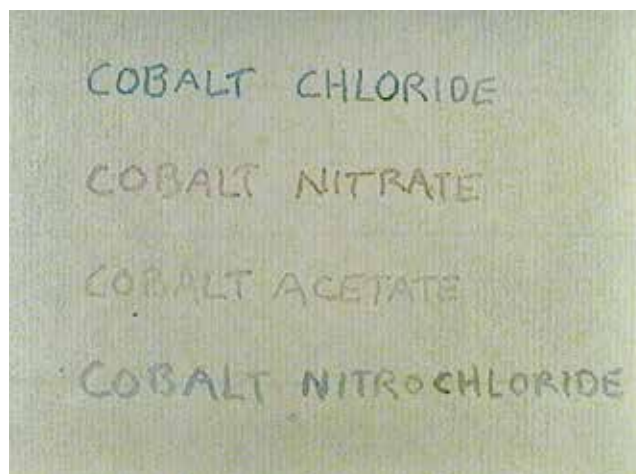 COBALT CHLORIDE
COBALT NITRATE
COBALT ACETATE
COBALT NITROCHLORIDE